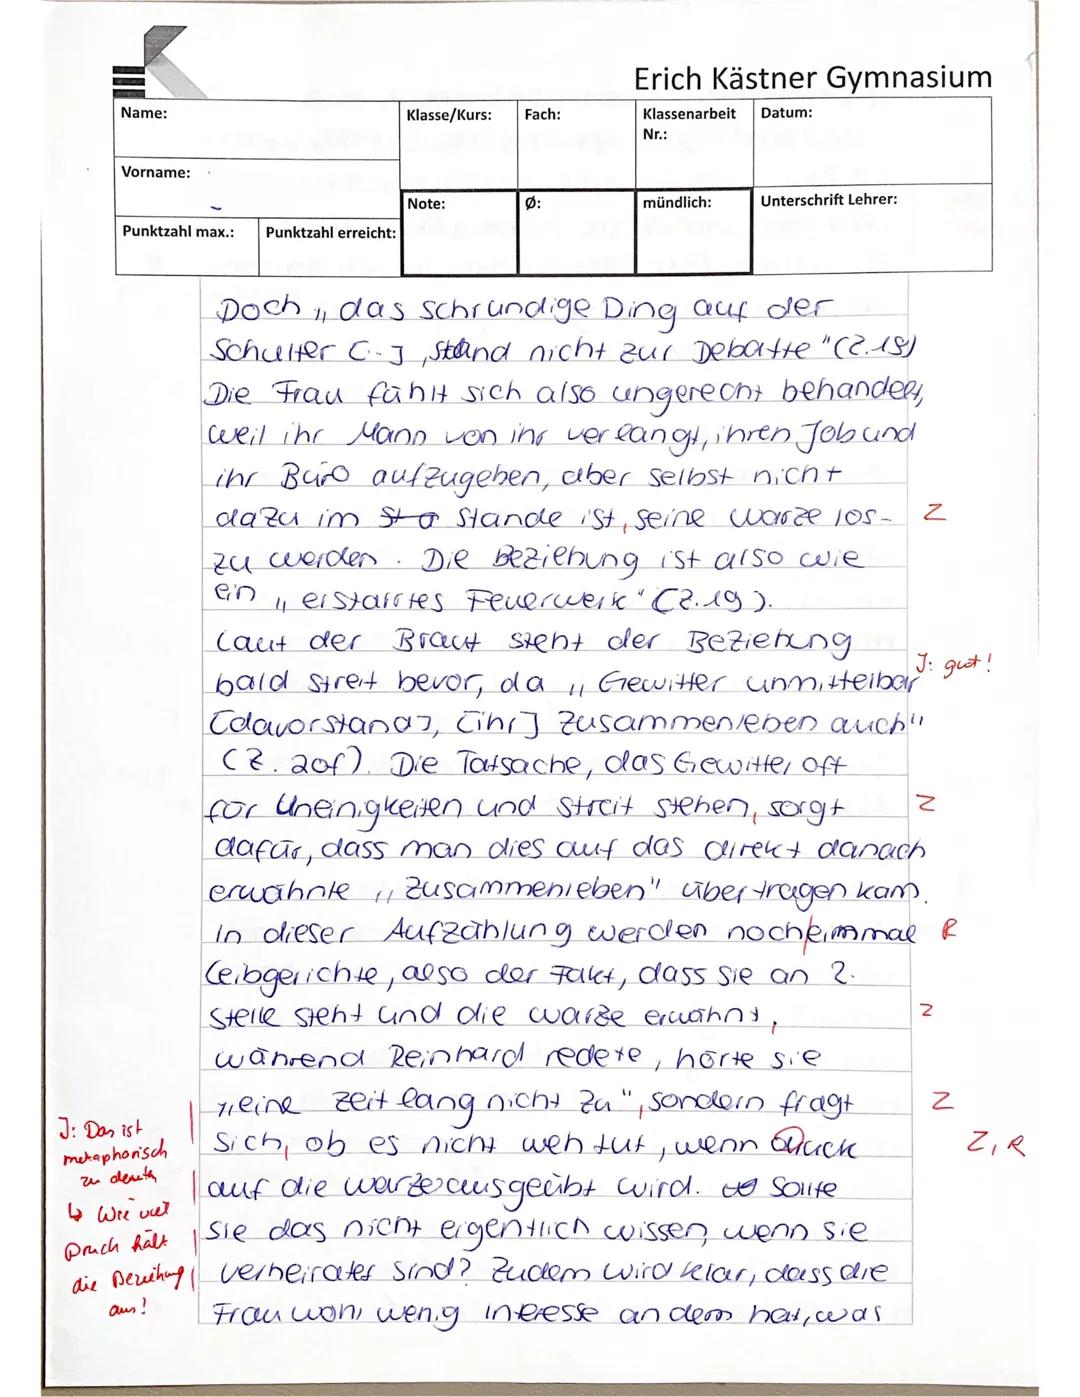 Erich Kästner Gymnasium
Name:
Klasse/Kurs:
Fach:
Klassenarbeit Nr.:
Datum:
Vorname:
Note:
Ø:
mündlich:
Unterschrift Lehrer:
Punktzahl max.:
Punktzahl erreicht:
Doch „das schrundige Ding auf der
Schulter [..] , stand nicht zur Debatte" (Z.18)
Die Frau fühlt sich also ungerecht behandelt,
weil ihr Mann von ihr verlangt, ihren Job und
ihr Büro aufzugeben, aber selbst nicht
dazu im Stande ist, seine Warze los- Z
zu werden. Die Beziehung ist also wie
ein „erstarrtes Feuerwerk" (Z.19).
Laut der Braut steht der Beziehung
J: gut!
bald Streit bevor, da „Gewitter unmittelbar
[davorstand], [ihr] Zusammenleben auch"
(Z. 20f). Die Tatsache, das Gewitter oft
für Uneinigkeiten und Streit stehen, sorgt Z
dafür, dass man dies auf das direkt danach
erwähnte „Zusammenleben" übertragen kann.
In dieser Aufzählung werden nocheinmal R
Leibgerichte, also der Fakt, dass sie an 2.
Stelle steht und die Warze erwähnt, Z
während Reinhard redete, hörte sie
„eine Zeit lang nicht zu", sondern fragt Z
sich, ob es nicht weh tut, wenn Druck Z, R
auf die Warze ausgeübt wird. Sollte
sie das nicht eigentlich wissen, wenn sie
verheiratet sind? Zudem wird klar, dass die
Frau wohl wenig Interesse an dem hat, was
J: Das ist
metaphorisch
zu deuten
↳ Wie viel
Druck hält
die Beziehung
aus!